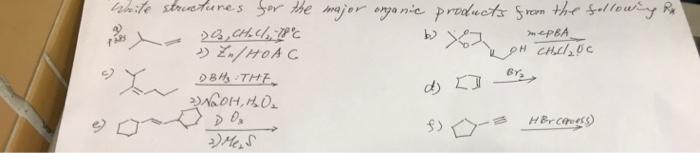 Write structures for the major organic products from the following Rx
a) 1) O3, CH2Cl2, -78°C
2) Zn/HOAc
b) OH mcpBA
CH2Cl2 0°C
c) 1) BH3·THF
2) NaOH, H2O2
d) Br2
e) 1) O3
2) Me2S
f) HBr (excess)